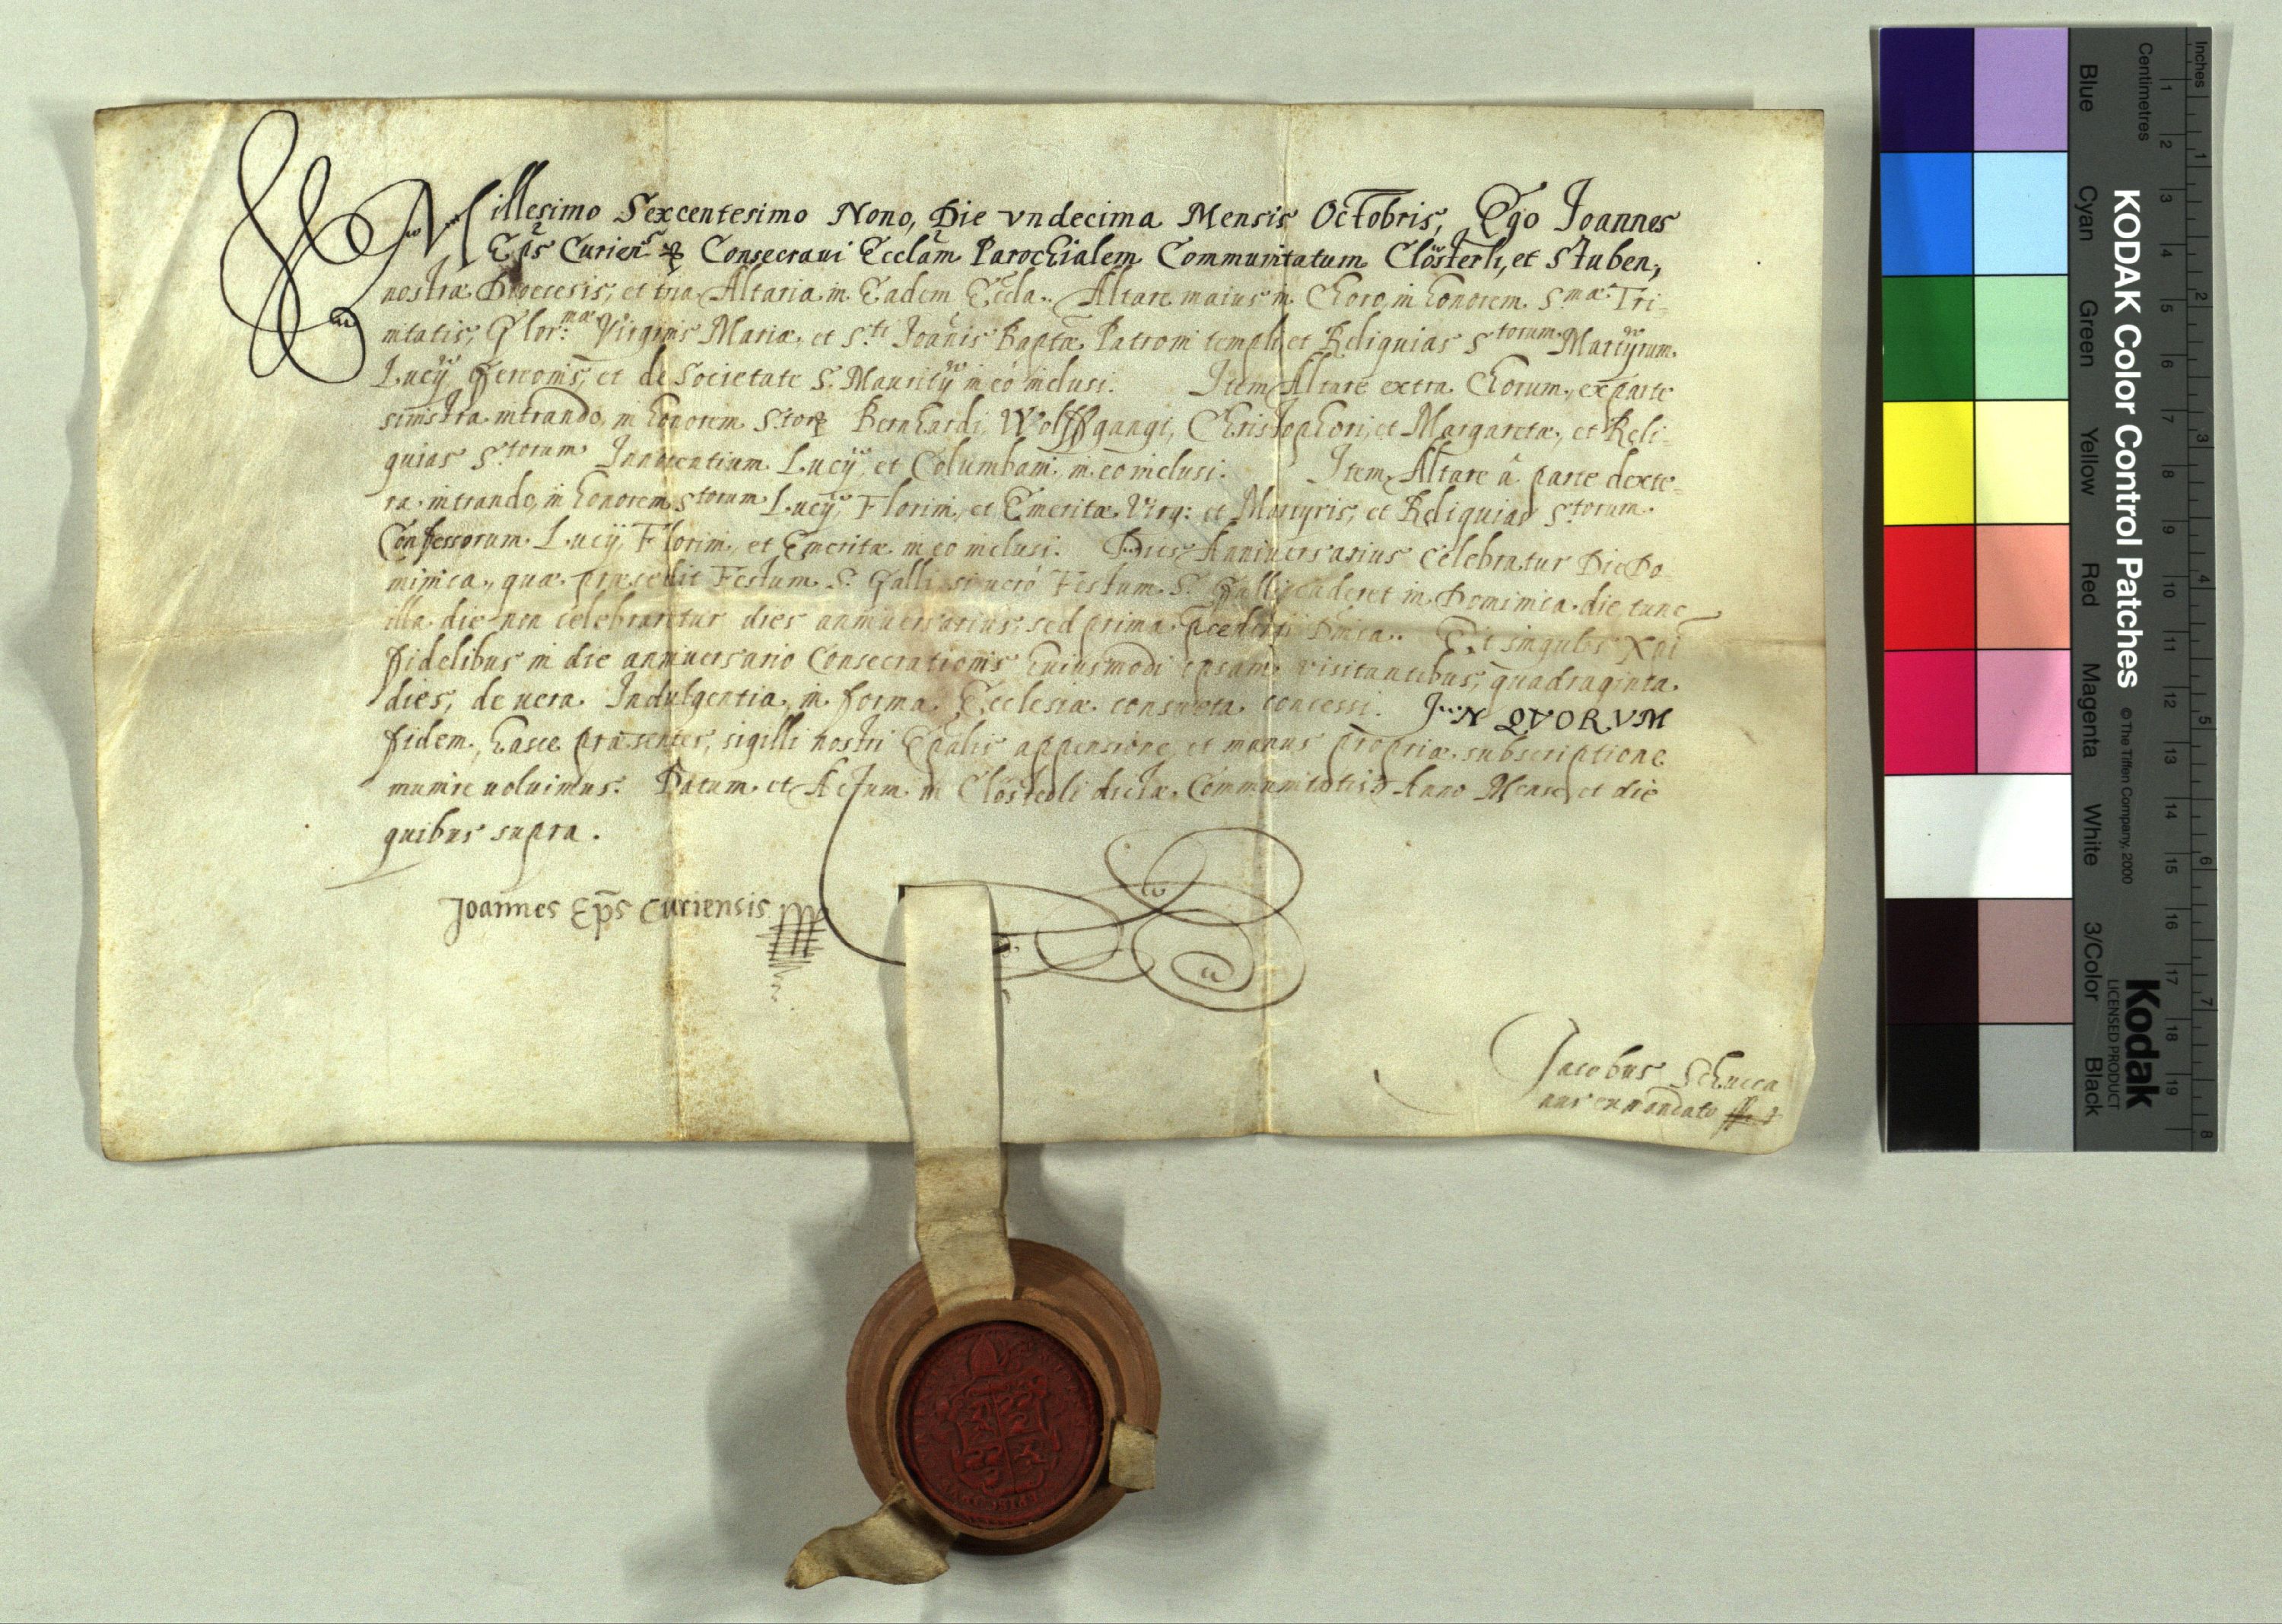 Millesimo Sexcentesimo Nono, Die vndecima Mensis Octobris, Ego Joannes
Ep̃s Curieñ Consecraui Ecclãm Parochialem Communitatum Clösterli, et Stuben,
nostræ Diœcesis, et tria Altaria in Eadem Eccl̃a. Altare maius in Choro, in honorem S.mæ Tri-
nitatis, Glor.mæ Virginis Mariæ, et S.ti Joan̄is Bapt̃æ Patroni templi et Reliquias S.torum Martÿrum
Lucÿ et de Societate S. Mauritÿ in eo inclusi. Item Altare extra Chorum, ex parte
sinistra intrando, in honorem S.torꝝ Bernhardi, Wolffgangi, Christophori, et Margaretæ, et Reli-
quias S.torum Innocentium Lucÿ, et Columbani, in eo inclusi. Item Altare à parte dexte-
ra intrando, in honorem S.torum Lucÿ, Florini, et Emeritæ Virg: et Martyris, et Reliquias S.torum
Confessorum Lucÿ, Florini, et Emeritæ in eo inclusi. Dies Anniuersarius celebratur Die Do-
minica, quæ præcedit Festum S. Galli, si uerò Festum S. Galli caderet in Dominica die tunc
illa die non celebraretur dies anniuersarius, sed prima Dn̄ica. Et singulis Xpi
fidelibus in die anniuersario Consecrationis huiusmodi ipsam visitantibus, quadraginta
dies, de uera Indulgentia, in forma Ecclesiæ consueta concessi. JN QVORVM
fidem, hasce præsentes, sigilli nostri Ep̃alis appensione, et manus propriæ subscriptione
munire uoluimus. Datum et Actum in Clösterli dictæ Communitatis Anno Mense, et die
quibus supra.
Joannes Ep̃s Curiensis
Jacobus Schucca
nus ex mandato
KODAK Color Control Patches
© The Tiffen Company, 2000
Kodak
LICENSED PRODUCT
Inches
Centimetres
1 2 3 4 5 6 7 8
1 2 3 4 5 6 7 8 9 10 11 12 13 14 15 16 17 18 19
Blue
Cyan
Green
Yellow
Red
Magenta
White
3/Color
Black